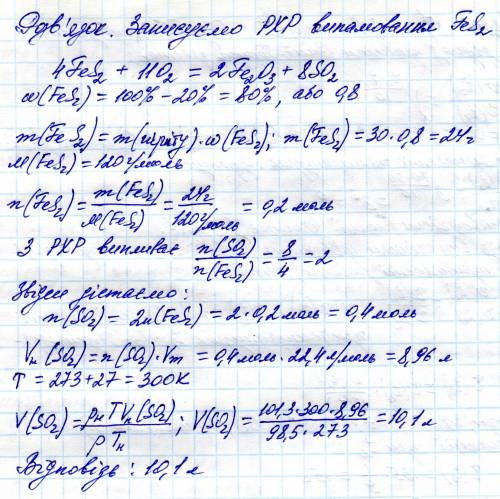 Розв'язок. Записуємо РХР випалювання FeS₂
4FeS₂ + 11O₂ = 2Fe₂O₃ + 8SO₂
ω(FeS₂) = 100% - 20% = 80%, або 0,8
m(FeS₂) = m(піриту) · ω(FeS₂); m(FeS₂) = 30 · 0,8 = 24г
M(FeS₂) = 120 г/моль
n(FeS₂) = m(FeS₂)/M(FeS₂) = 24г/120 г/моль = 0,2 моль
З РХР випливає n(SO₂)/n(FeS₂) = 8/4 = 2
Звідси дістаємо:
n(SO₂) = 2n(FeS₂) = 2 · 0,2 моль = 0,4 моль
Vₙ(SO₂) = n(SO₂) · Vm = 0,4 моль · 22,4 л/моль = 8,96 л
T = 273 + 27 = 300K
V(SO₂) = pₙTVₙ(SO₂)/pTₙ; V(SO₂) = 101,3 · 300 · 8,96/98,5 · 273 = 10,1 л
Відповідь: 10,1 л